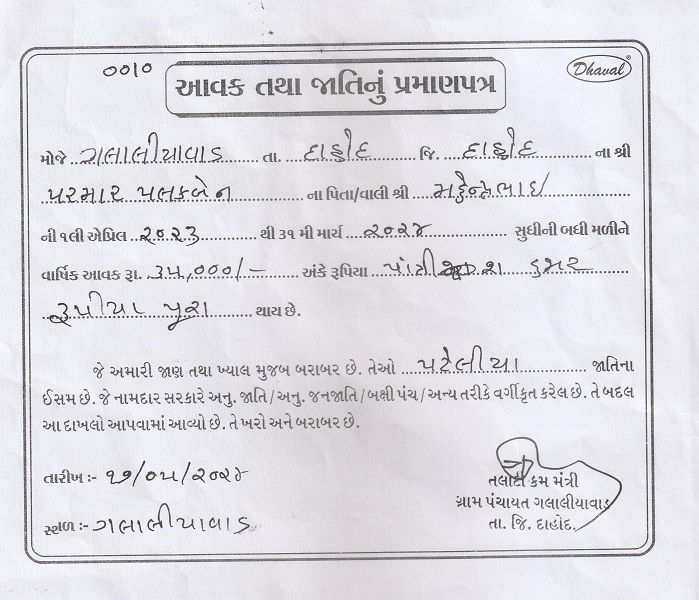 ૦૦૧૦
Dhaval®
આવક તથા જાતિનું પ્રમાણપત્ર
મોજે ગલાલીયાવાડ તા. દાહોદ જિ. દાહોદ ના શ્રી
પરમાર પલકબેન ના પિતા/વાલી શ્રી
ની ૧લી એપ્રિલ ૨૦૨૩ થી ૩૧ મી માર્ચ ૨૦૨૪ સુધીની બધી મળીને
વાર્ષિક આવક રૂા. ૩૫,૦૦૦/- અંકે રૂપિયા
રૂપીયા પૂરા થાય છે.
જે અમારી જાણ તથા ખ્યાલ મુજબ બરાબર છે. તેઓ પટેલીયા જાતિના
ઈસમ છે. જે નામદાર સરકારે અનુ. જાતિ / અનુ. જનજાતિ / બક્ષી પંચ / અન્ય તરીકે વર્ગીકૃત કરેલ છે. તે બદલ
આ દાખલો આપવામાં આવ્યો છે. તે ખરો અને બરાબર છે.
તારીખ :- ૧૭/૦૫/૨૦૨૪
તલાટી કમ મંત્રી
ગ્રામ પંચાયત ગલાલીયાવાડ
સ્થળ :- ગલાલીયાવાડ
તા. જિ. દાહોદ.